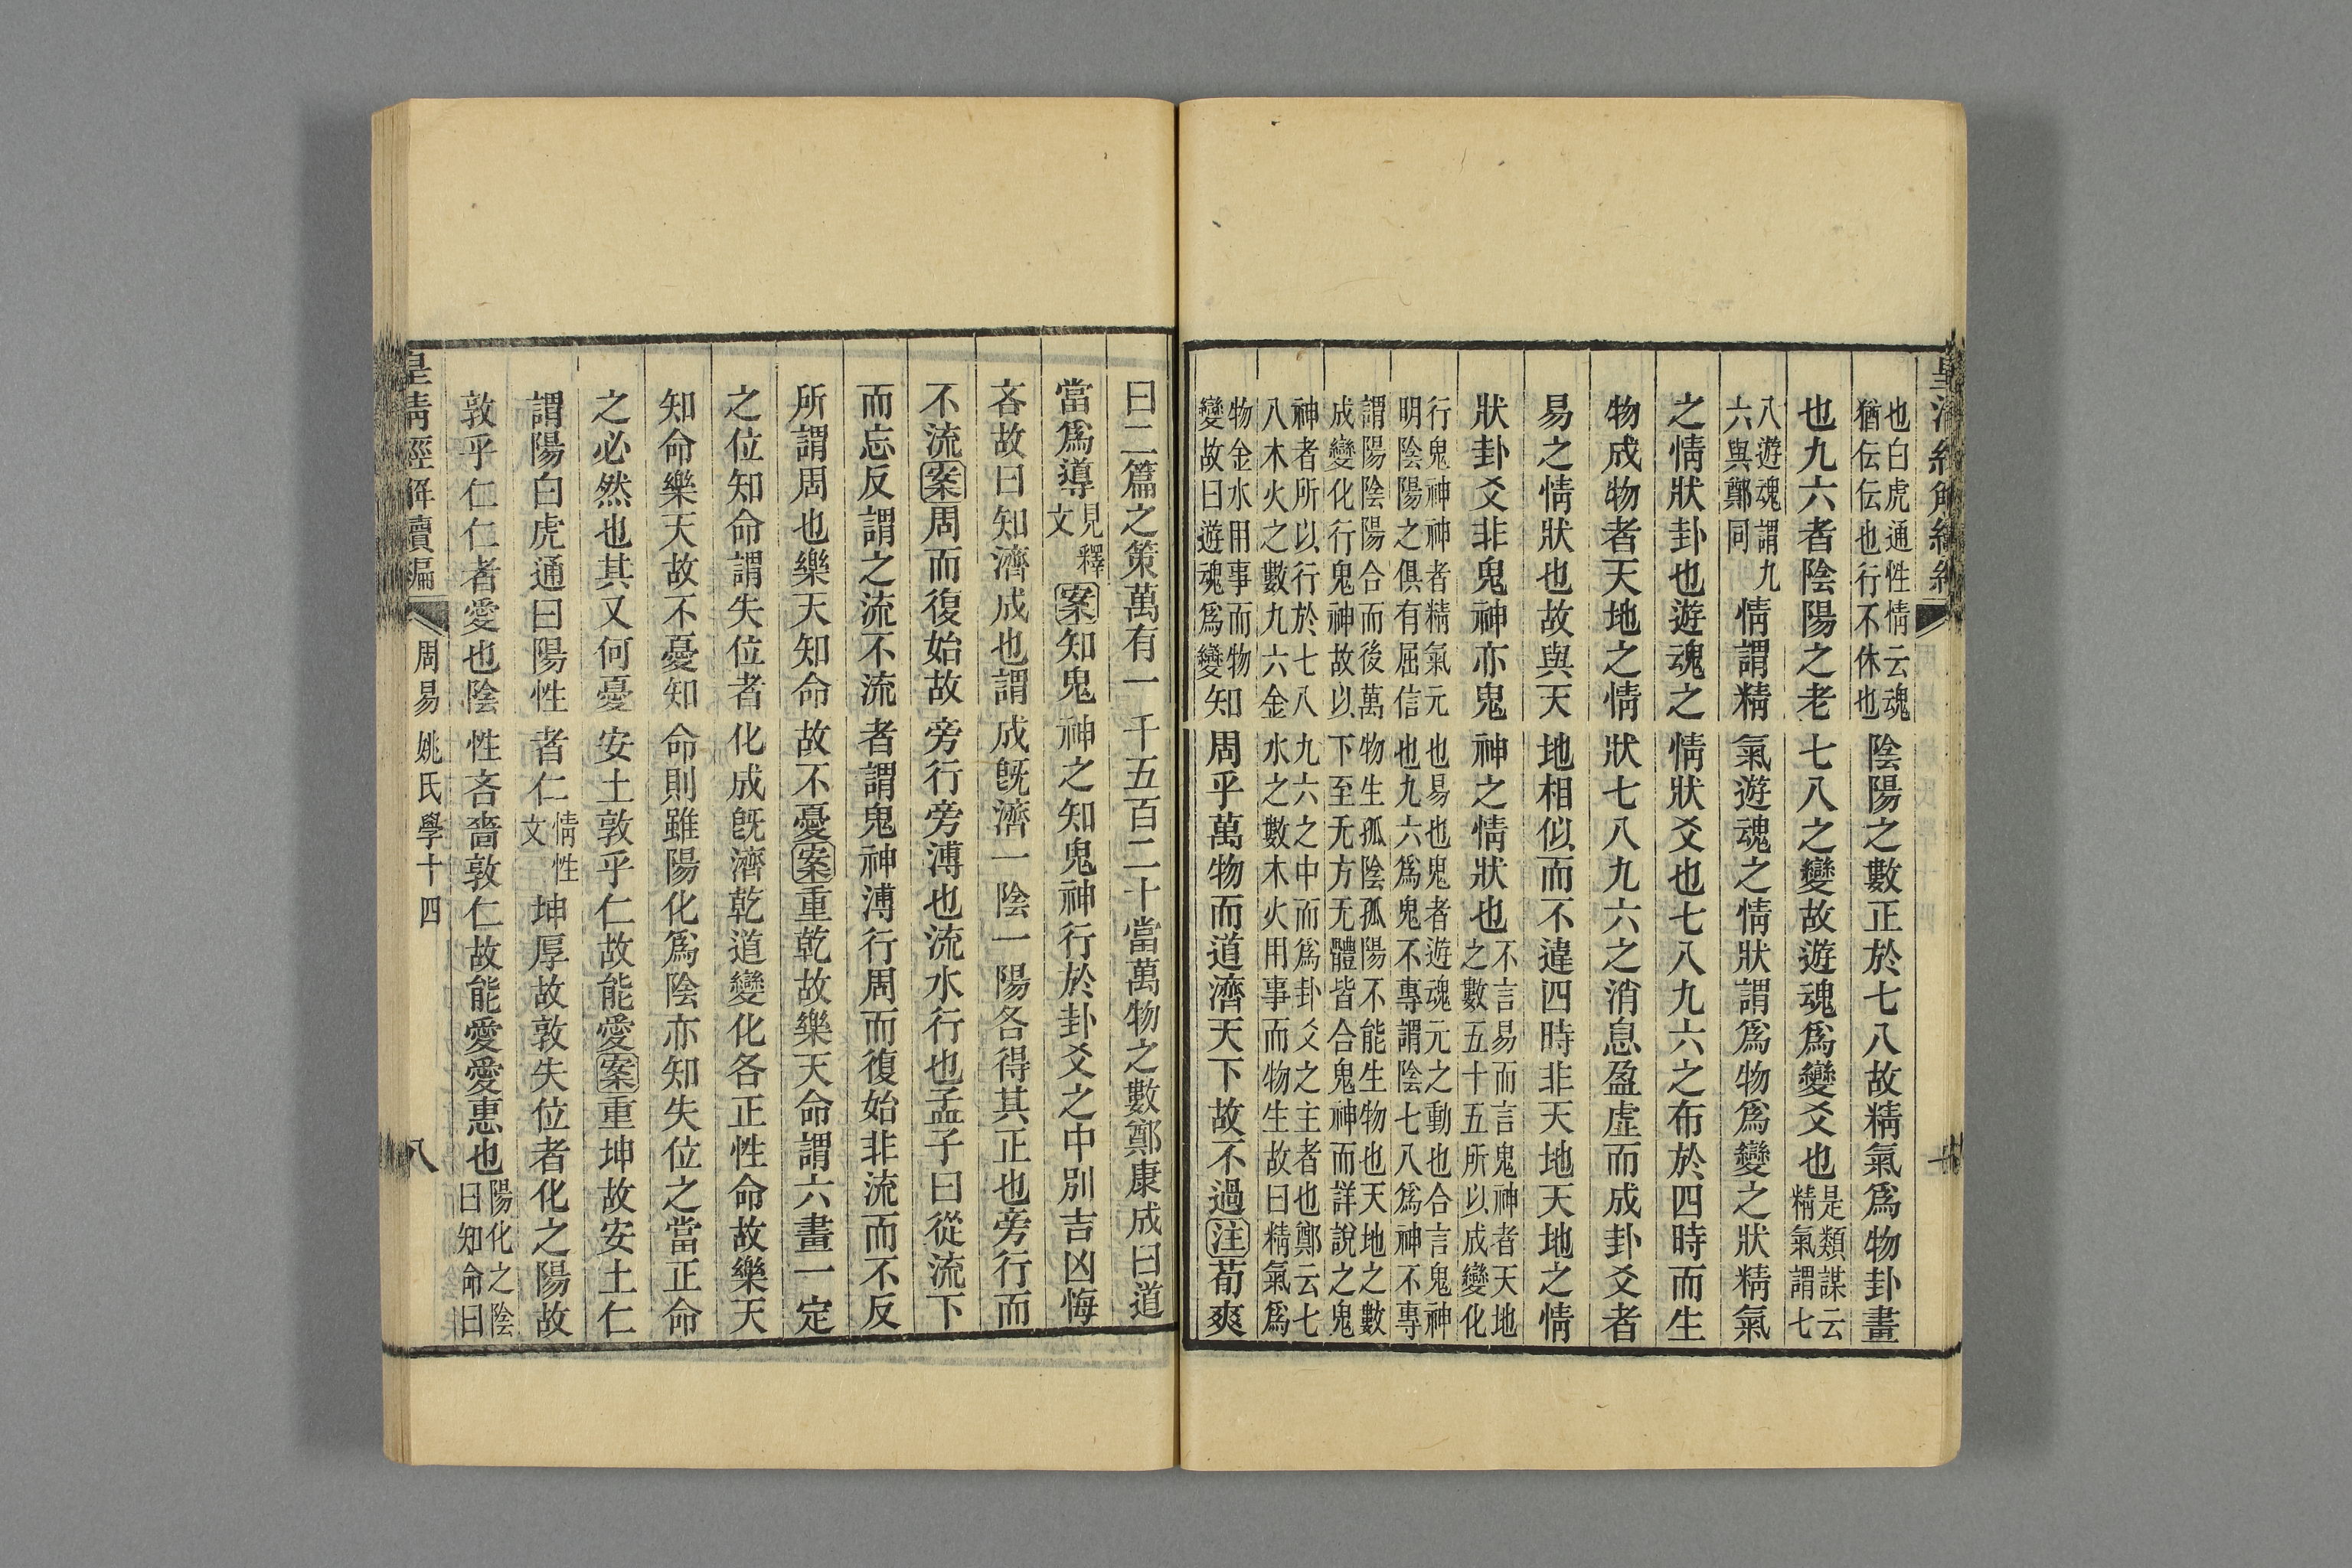 也白虎通性情云魂
猶伝伝也行不休也
陰陽之數正於七八故精氣爲物卦畫
也九六者陰陽之老七八之變故遊魂爲變爻也
是類謀云
精氣謂七
八遊魂謂九
六與鄭同
情謂精氣遊魂之情狀謂爲物爲變之狀精氣
之情狀卦也遊魂之情狀爻也七八九六之布於四時而生
物成物者天地之情狀七八九六之消息盈虛而成卦爻者
易之情狀也故與天地相似而不違四時非天地天地之情
狀卦爻非鬼神亦鬼神之情狀也
不言易而言鬼神者天地
之數五十五所以成變化
行鬼神神者精氣元也易也鬼者遊魂元之動也合言鬼神
明陰陽之俱有屈信也九六爲鬼不專謂陰七八爲神不專
謂陽陰陽合而後萬物生孤陰孤陽不能生物也天地之數
成變化行鬼神故以下至无方无體皆合鬼神而詳說之鬼
神者所以行於七八九六之中而爲卦爻之主者也鄭云七
八木火之數九六金水之數木火用事而物生故曰精氣爲
物金水用事而物
變故曰遊魂爲變
知周乎萬物而道濟天下故不過注荀爽
曰二篇之策萬有一千五百二十當萬物之數鄭康成曰道
當爲導
見釋
文
案知鬼神之知鬼神行於卦爻之中別吉凶悔
吝故曰知濟成也謂成旣濟一陰一陽各得其正也旁行而
不流案周而復始故旁行旁溥也流水行也孟子曰從流下
而忘反謂之流不流者謂鬼神溥行周而復始非流而不反
所謂周也樂天知命故不憂案重乾故樂天命謂六畫一定
之位知命謂失位者化成旣濟乾道變化各正性命故樂天
知命樂天故不憂知命則雖陽化爲陰亦知失位之當正命
之必然也其又何憂安土敦乎仁故能愛案重坤故安土仁
謂陽白虎通曰陽性者仁
情性
文
坤厚故敦失位者化之陽故
敦乎仁仁者愛也陰性吝嗇敦仁故能愛愛惠也
陽化之陰
曰知命曰
皇清經解續編
周易姚氏學十四
八